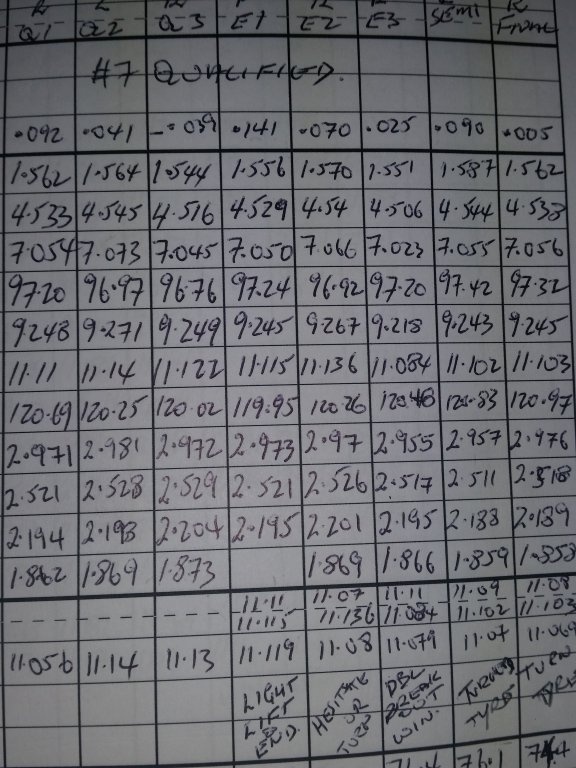 Q1 Q2 Q3 E1 E2 E3 SEMI FINAL
#7 QUALIFIED.
.092 .041 -.039 .141 .070 .025 .090 .005
1.562 1.564 1.544 1.556 1.570 1.551 1.587 1.562
4.533 4.545 4.516 4.529 4.54 4.506 4.544 4.538
7.054 7.073 7.045 7.050 7.066 7.023 7.055 7.056
97.20 96.97 96.76 97.24 96.92 97.20 97.42 97.32
9.248 9.271 9.249 9.245 9.267 9.218 9.243 9.245
11.11 11.14 11.122 11.115 11.136 11.084 11.102 11.103
120.69 120.25 120.02 119.95 120.26 120.48 120.83 120.97
2.971 2.981 2.972 2.973 2.97 2.955 2.957 2.976
2.521 2.528 2.529 2.521 2.526 2.517 2.511 2.518
2.194 2.198 2.204 2.195 2.201 2.195 2.188 2.189
1.862 1.869 1.873 1.869 1.866 1.859 1.858
11.11 11.07 11.11 11.09 11.08
11.115 11.136 11.084 11.102 11.103
11.056 11.14 11.13 11.119 11.08 11.079 11.07 11.069
LIGHT
LIFT
@
END.
HESITATE
OR
TURN
DBL
BREAK
OUT
WIN.
TURNED
TYRE
TURN
TYRE
76.1 74.4